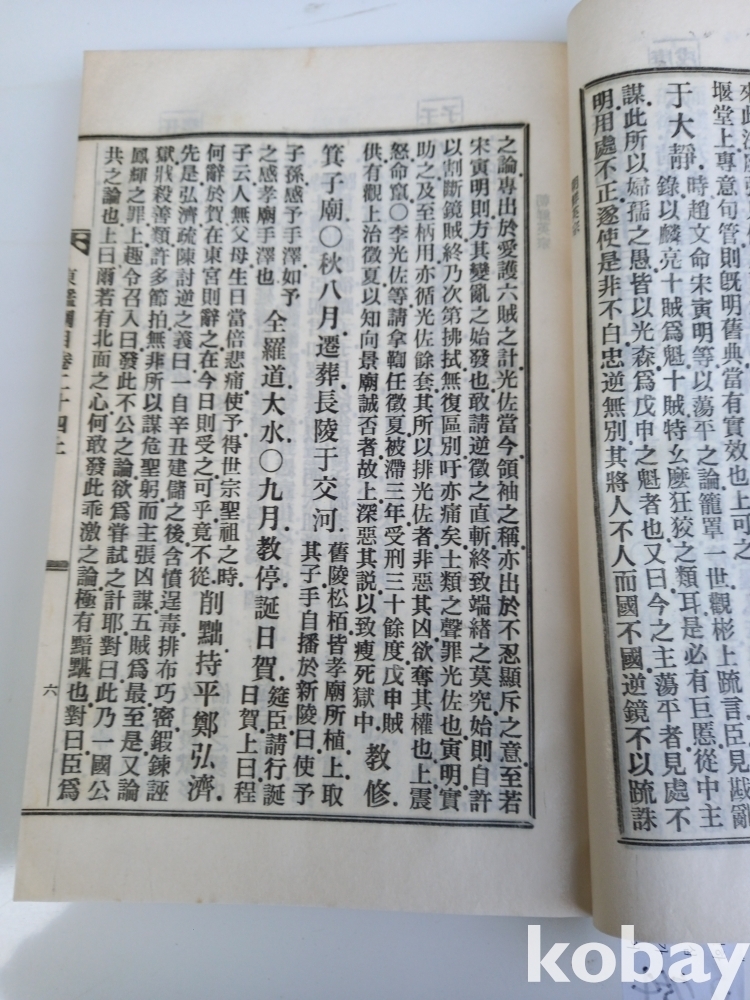 來此
堰堂上專意句管則旣明舊典當有實效也上可之
時趙文命宋寅明等以蕩平之論籠罩一世觀彬上䟽言臣見戡亂
于大靜
錄以麟亮十賊爲魁十賊特幺麽狂狡之類耳是必有巨慝從中主
謀此所以婦孺之愚皆以光森爲戊申之魁者也又曰今之主蕩平者見處不
明用處不正遂使是非不白忠逆無別其將人不人而國不國逆鏡不以䟽誅
之論專出於愛護六賊之計光佐當今領袖之稱亦出於不忍顯斥之意至若
宋寅明則方其變亂之始發也敢請逆徵之直斬終致端緖之莫究始則自許
以割斷鏡賊終乃次第拂拭無復區別吁亦痛矣士類之聲罪光佐也寅明實
助之及至柄用亦循光佐餘套其所以排光佐者非惡其凶欲奪其權也上震
怒命竄〇李光佐等請拿鞫任徵夏被滯三年受刑三十餘度戊申賊
供有觀上治徵夏以知向景廟誠否者故上深惡其説以致瘐死獄中 敎修
箕子廟〇秋八月遷葬長陵于交河 舊陵松栢皆孝廟所植上取
其子手自播於新陵曰使予
子孫感予手澤如予
之感孝廟手澤也 全羅道大水〇九月敎停誕日賀 筵臣請行誕
日賀上曰程
子云人無父母生日當倍悲痛使予得世宗聖祖之時
何辭於賀在東宮則辭之在今日則受之可乎竟不從 削黜持平鄭弘濟
先是弘濟疏陳討逆之義曰一自辛丑建儲之後含憤逞毒排布巧密鍛鍊誣
獄戕殺善類許多節拍無非所以謀危聖躬而主張凶謀五賊爲最至是又論
鳳輝之罪上趣令召入曰發此不公之論欲爲嘗試之計耶對曰此乃一國公
共之論也上曰爾若有北面之心何敢發此乖激之論極有黯黮也對曰臣爲
東鑑綱目卷二十四上
六
kobay